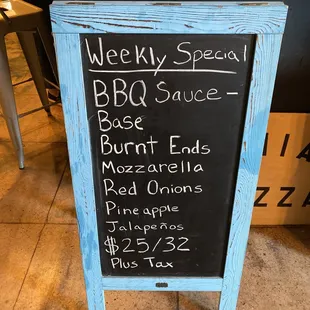 Weekly Special
BBQ Sauce -
Base
Burnt Ends
Mozzarella
Red Onions
Pineapple
Jalapeños
$25/32
Plus Tax